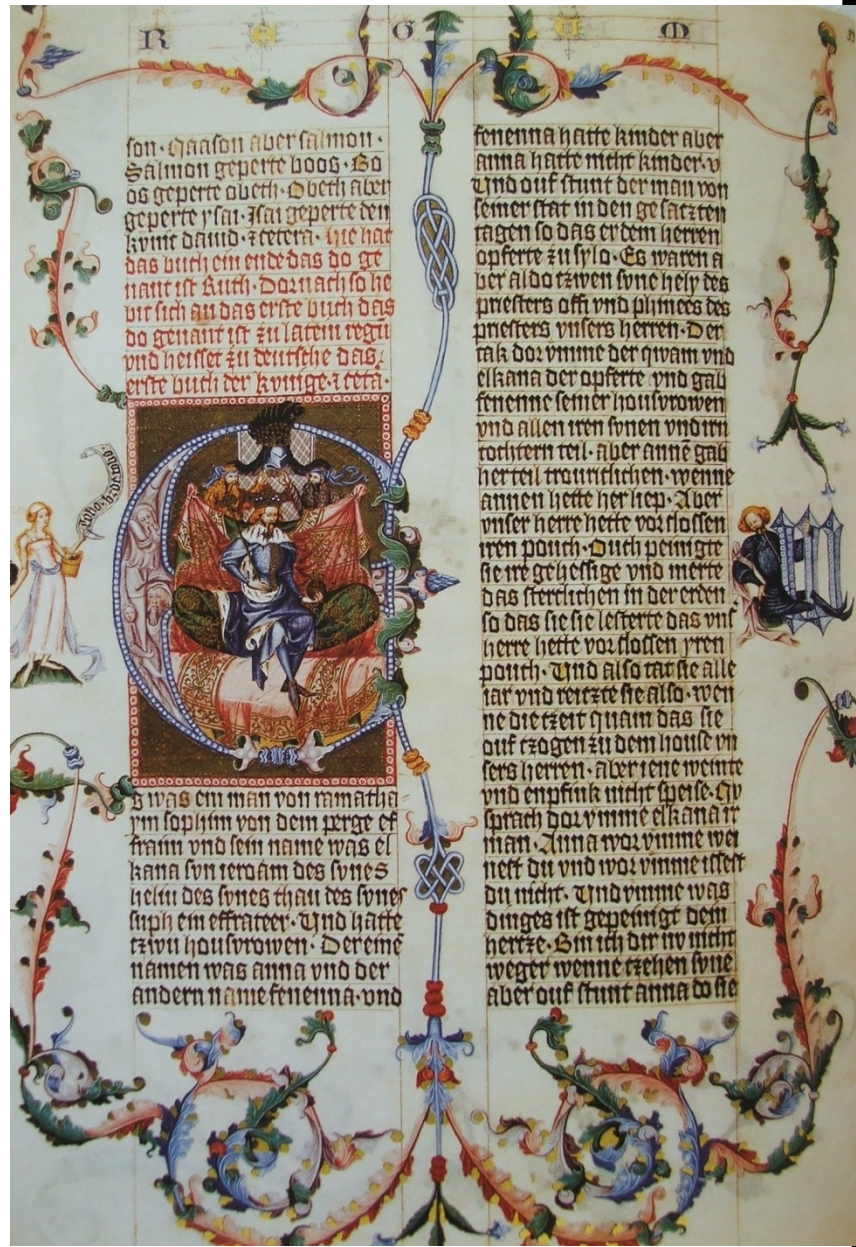 R E G U M
son · Naason aber salmon ·
Salmon geperte boos · Bo
os geperte obeth · Obeth aber
geperte ysai · Isai geperte den
kvnit dauid · ⁊ cetera · hie hat
das buch ein ende das do ge
nant ist Ruth · Dornach so he
bit sich an das erste buch das
do genant ist zu latein regū
vnd heisset zu deutsche das
erste buch der kvnige · ⁊ cetā ·
E
s was ein man von ramatha
ym sophim von dem perge ef
fraim vnd sein name was el
kana svn ieroam des svnes
heliu des svnes thau des svnes
suph ein effrateer · Vnd hatte
tzwu housvrowen · Der eine
namen was anna vnd der
andern name fenenna · vnd
fenenna hatte kinder aber
anna hatte nicht kinder · v
Vnd ouf stunt der man von
seiner stat in den gesatzten
tagen so das er dem herren
opferte zu sylo · Es waren a
ber aldo tzwen svne hely des
priesters offi vnd phinees des
priesters vnsers herren · Der
tak dor vmme der qwam vnd
elkana der opferte vnd gab
fenenne seiner housvrowen
vnd allen iren svnen vnd irn
tochtern teil · aber annē gab
her teil trouriclichen · wenne
annen hette her liep · Aber
vnser herre hette vorslossen
iren pouch · Ouch peinigte
sie ire gehessige vnd merte
das sterclichen in der erden
so das sie sie lesterte das vnſ
herre hette vorslossen yren
pouch · Vnd also tat sie alle
iar vnd reitzte sie also · wen
ne die tzeit quam das sie
ouf tzogen zu dem house vn
sers herren · aber iene weinte
vnd enpfink nicht speise · Ny
sprach dor vmme elkana ir
man · Anna worvmme wei
nest du vnd worvmme issest
du nicht · Vnd vmme was
dinges ist gepeinigt dein
hertze · Bin ich dir nv nicht
weger wenne tzehen svne
aber ouf stunt anna do sie